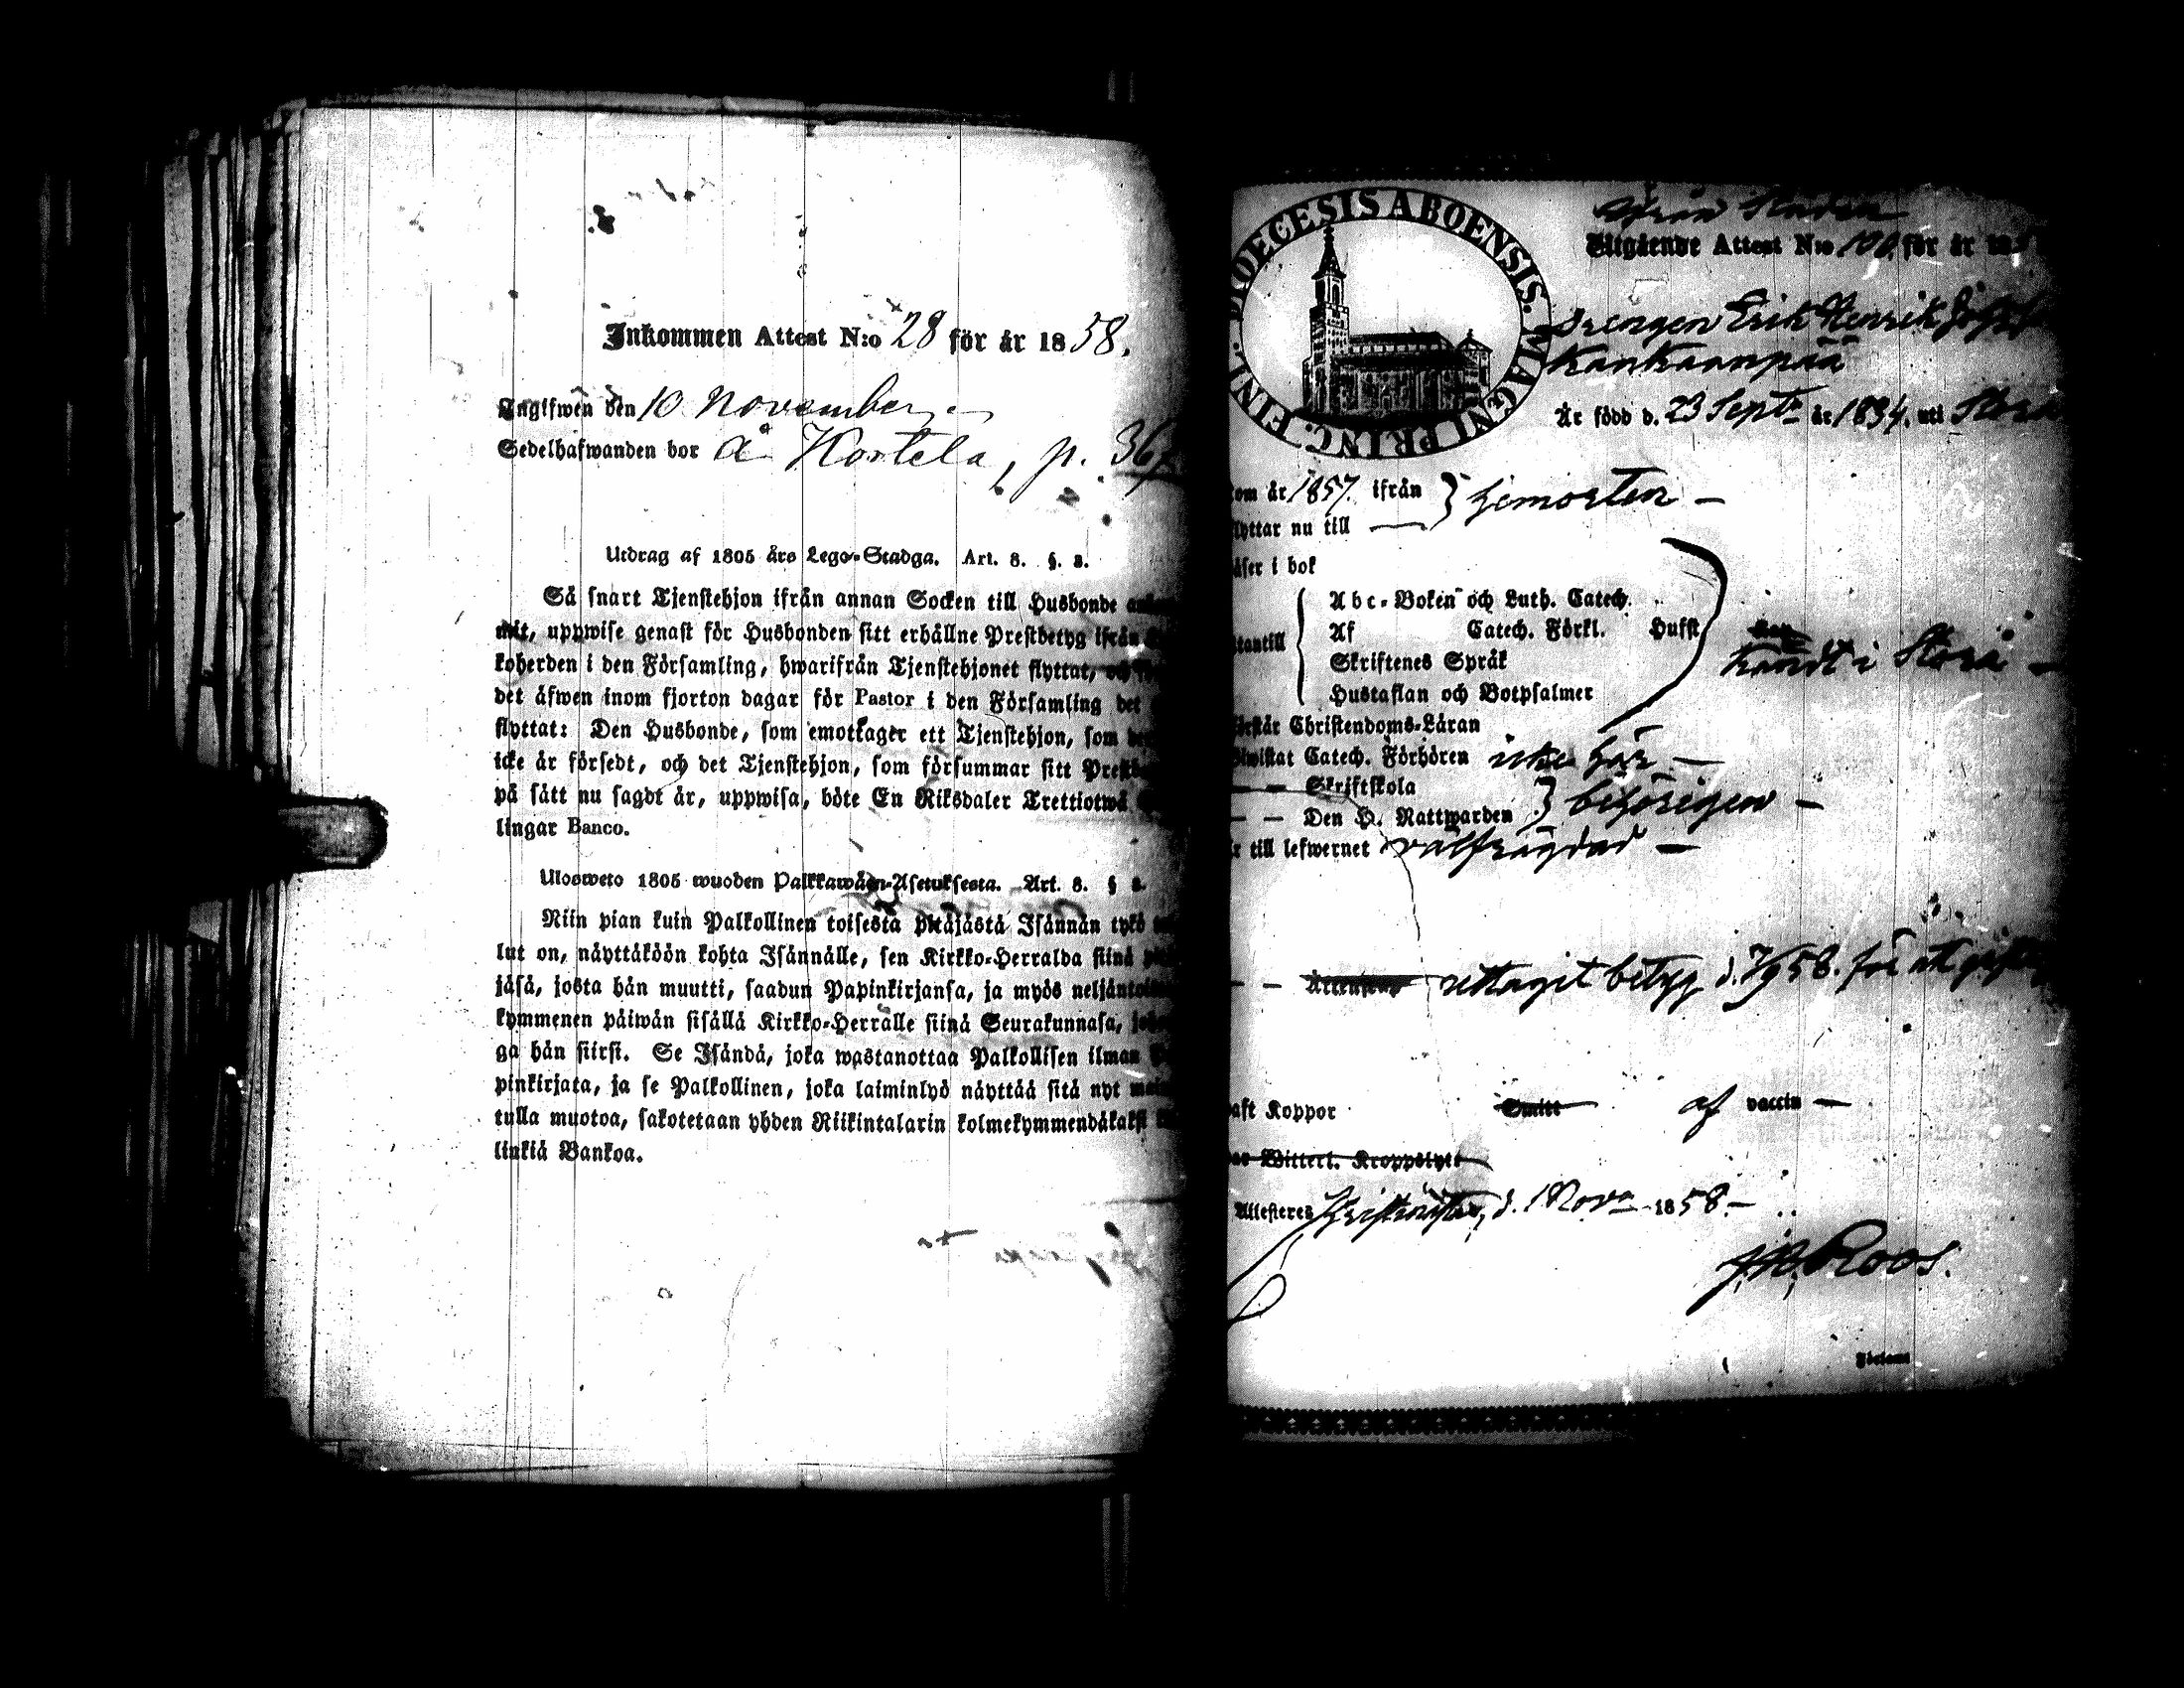 Inkommen Attest N:o 28 för år 1858.
Ingifwen den 10 November.
Sedelhafwanden bor å Kortela, p. 367
Utdrag af 1805 års Lego-Stadga. Art. 8. §. 2.
Så snart Tjenstehjon ifrån annan Socken till Husbonde
mit, uppwise genast för Husbonden sitt erhållne Prestbetyg ifrån
koherden i den Församling, hwarifrån Tjenstehjonet flyttat, och
det äfwen inom fjorton dagar för Pastor i den Församling det
flyttat: Den Husbonde, som emottager ett Tjenstehjon, som
icke är försedt, och det Tjenstehjon, som försummar sitt
på sätt nu sagdt är, uppwisa, böte En Riksdaler Trettiotwå
lingar Banco.
Ulosweto 1805 wuoden Palkkawäen-Asetuksesta. Art. 8. § 2.
Niin pian kuin Palkollinen toisesta pitäjästä Isännän tykö
lut on, näyttäköön kohta Isännälle, sen Kirkko-Herralda siinä
jäsä, josta hän muutti, saadun Papinkirjansa, ja myös
kymmenen päiwän sisällä Kirkko-Herralle siinä Seurakunnasa,
ga hän siirsi. Se Isändä, joka wastanottaa Palkollisen ilman
pinkirjata, ja se Palkollinen, joka laiminlyö näyttää sitä nyt
tulla muotoa, sakotetaan yhden Riikintalarin kolmekymmendäkaksi
linkiä Bankoa.
DIOECESIS ABOENSIS. MAGNI PRINC. FINL.
Utgående Attest N:o 100 för år
Drengen Erik Henrik
Kankaanpää
Är född d. 23 Sept. år 1834. uti Stora
om år 1857. ifrån } hemorten —
lyttar nu till —
äser i bok
Abc-Boken och Luth. Catech.
Af Catech. Förkl. Hufst
utantill
Skriftenes Språk
kändt i Storå —
Hustaflan och Botpsalmer
örstår Christendoms-Läran
iwistat Catech. Förhören icke här —
— — Skriftskola
— — Den H. Nattwarden } behörigen —
r till lefwernet välfrägdad —
— — uttagit betyg d. 7/9 58. för att
aft Koppor Smitt af vaccin —
ar Witterl. Kroppslyte
Attesteres d. 1 Nov. 1858. —
Roos.